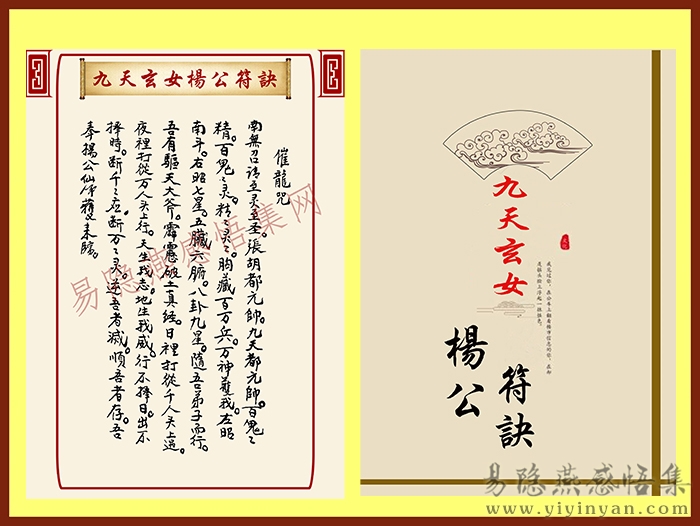 九天玄女楊公符訣
催龍咒
南無召请至灵至圣。張胡都元帥。九天都元帥。百鬼之
精。百鬼之灵。精之灵之。胸藏百万兵。万神護我。左昭
南斗。右昭七星。五臟六腑。八卦九星。隨吾弟子而行。
吾有驅天大斧。霹靂破土真经。日裡打從千人头上過。
夜裡打從万人头上行。天生我志。地生我威。行不擇日。出不
擇時。断千之应。断万之灵。逆吾者滅。順吾者存。吾
奉揚公仙师護身来臨。
易隐燕感悟集网
九天玄女
楊公
符訣
易隐燕感悟集
www.yiyinyan.com